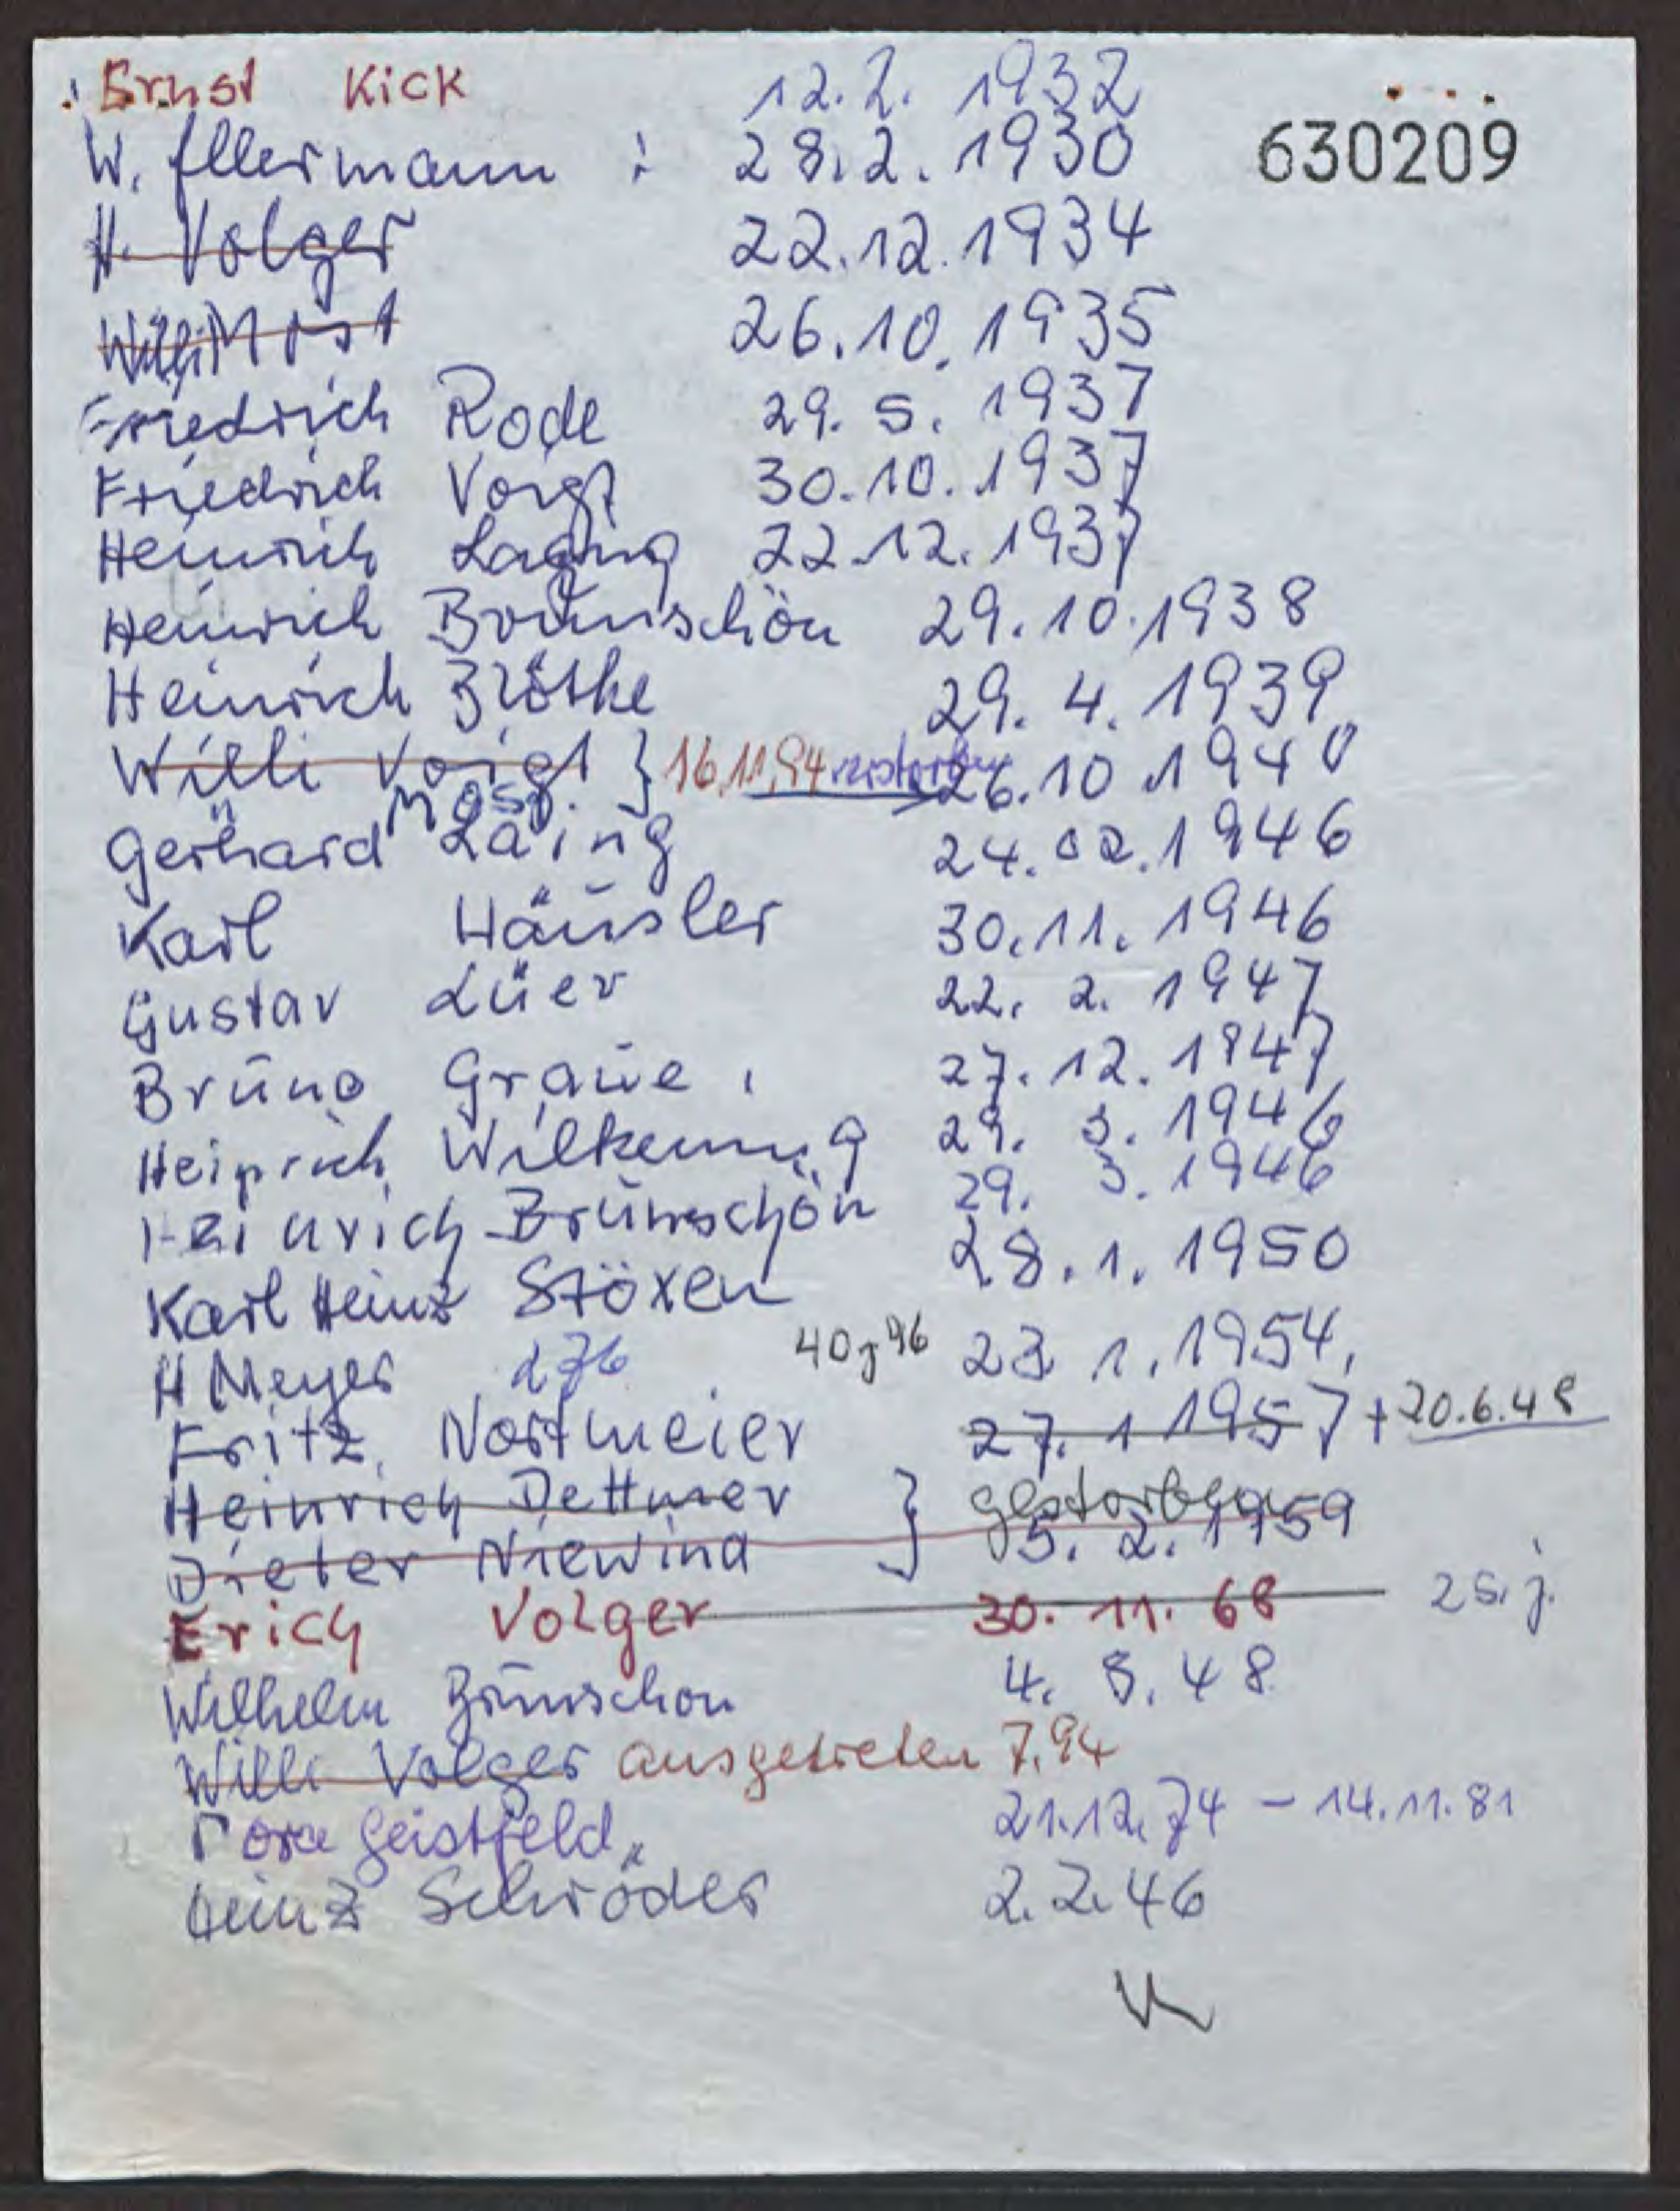 Ernst Kick 12.2. 1932
W. Ellermann : 28.2. 1930 630209
H. Volger 22.12.1934
Willi Most 26.10.1935
Friedrich Rode 29. 5. 1937
Friedrich Voigt 30.10.1937
Heinrich Laging 22.12.1937
Heinrich Brünschön 29.10.1938
Heinrich 29. 4. 1939
Willi Voigt } 16.11.94 26.10 1940
Most
Gerhard Läing 24.02.1946
Karl Häusler 30.11.1946
Gustav Lüer 22. 2. 1947
Bruno Graue 27.12.1947
Heinrich Wilkening 29. 3. 1946
Heinrich Brünschön 29. 3. 1946
Karl Heinz Stöxen 28.1.1950
H Meyer 276 40j 96 23 1.1954,
Fritz Nortmeier 27. 1 1957 + 20.6.48
Heinrich Dettmer } gestorben
Dieter Niewind 5. 2. 1959
Erich Volger 30. 11. 68 25. j.
Wilhelm Brünschon 4. 5. 48
Willi Volger ausgetreten 7.94
Geistfeld 21.12.74 - 14.11.81
Heinz Schröder 2.2.46